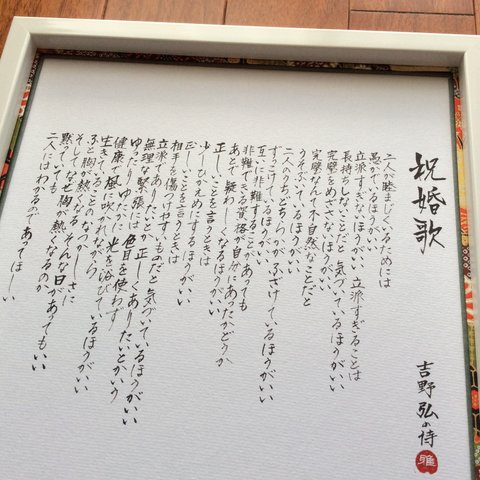 祝婚歌
二人が睦まじくいるためには
愚かでいるほうがいい
立派すぎないほうがいい 立派すぎることは
長持ちしないことだと 気づいているほうがいい
完璧をめざさないほうがいい
完璧なんて不自然なことだと
うそぶいているほうがいい
二人のうちどちらかが ふざけているほうがいい
ずっこけているほうがいい
互いに非難することがあっても
非難できる資格が自分にあったかどうか
あとで 疑わしくなるほうがいい
正しいことを言うときは
少しひかえめにするほうがいい
正しいことを言うときは
相手を傷つけやすいものだと気づいているほうがいい
立派でありたいとか 正しくありたいとかいう
無理な緊張には 色目を使わず
ゆったり ゆたかに 光を浴びているほうがいい
健康で 風に吹かれながら
生きていることのなつかしさに
ふと胸が熱くなる そんな日があってもいい
そして なぜ 胸が熱くなるのか
黙っていても
二人にはわかるのであってほしい
吉野弘の詩
雅